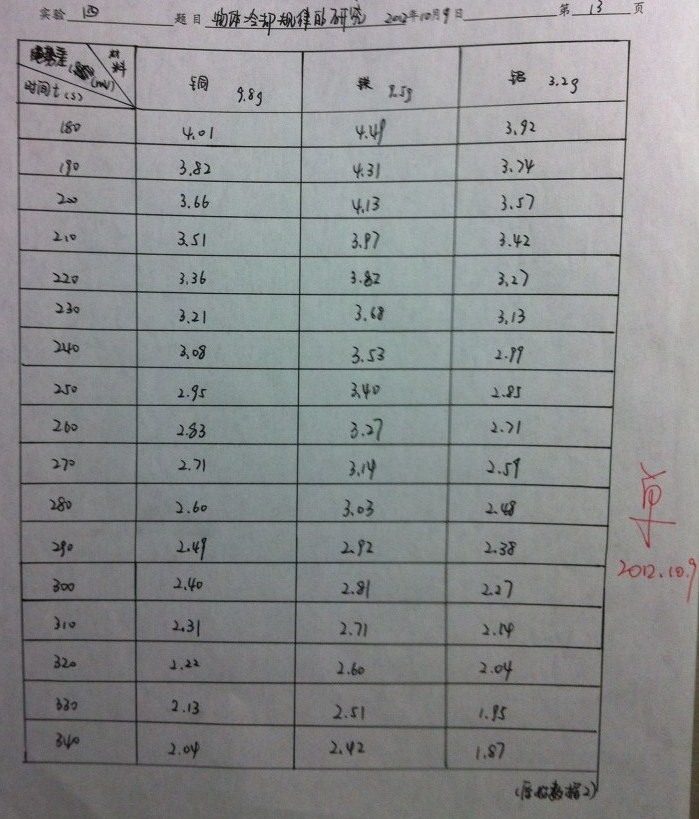 实验 四 题目 物体冷却规律的研究 2012年10月9日 第 13 页
材料 (mV)
时间t(s) 铜 9.8g 镁 8.5g 铝 3.2g
180 4.01 4.49 3.92
190 3.82 4.31 3.74
200 3.66 4.13 3.57
210 3.51 3.97 3.42
220 3.36 3.82 3.27
230 3.21 3.68 3.13
240 3.08 3.53 2.99
250 2.95 3.40 2.85
260 2.83 3.27 2.71
270 2.71 3.14 2.59
280 2.60 3.03 2.48
290 2.49 2.92 2.38
300 2.40 2.81 2.27
310 2.31 2.71 2.14
320 2.22 2.60 2.04
330 2.13 2.51 1.95
340 2.04 2.42 1.87
2012.10.9
(原始数据2)